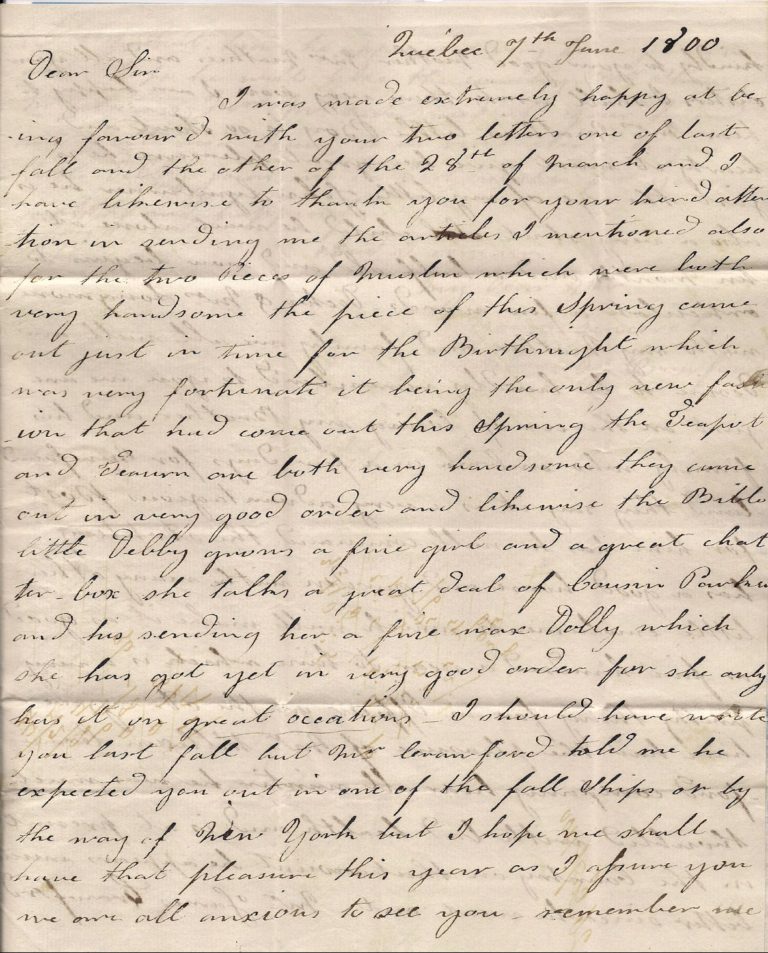 Québec 7th June 1800
Dear Sir
I was made extremely happy at be-
-ing favour'd with your two letters one of last
fall and the other of the 28th of March and I
have likewise to thank you for your kind atten
tion in sending me the articles I mentioned also
for the two Pieces of Muslin which were both
very handsome the piece of this Spring came
out just in time for the Birthnight which
was very fortunate it being the only new fash
-ion that had come out this Spring the Teapot
and Teaurn are both very handsome they came
out in very good order and likewise the Bible
little Debby grows a fine girl and a great chat
ter-box she talks a great deal of Cousin
and his sending her a fine wax Dolly which
she has got yet in very good order for she only
has it on great occations - I should have wrote
you last fall but Mr Crawford told me he
expected you out in one of the fall Ships or by
the way of New York but I hope we shall
have that pleasure this year as I assure you
we are all anxious to see you - remember me